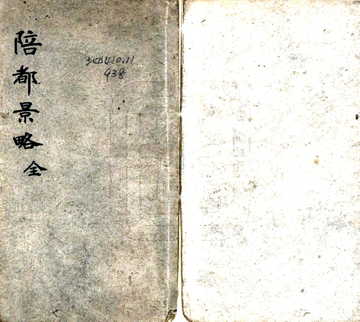 陪都景略 全
938